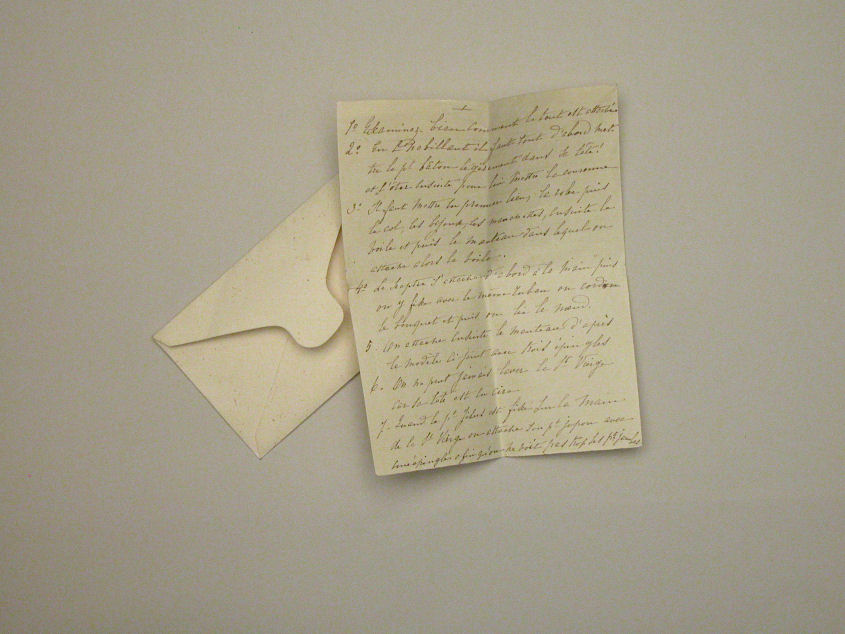 +
1º Examinez bien comment le tout est attaché
2º En L'Rabillant il faut tout d'abord met-
tre le pt bâton légèrement dans le
et l'ôter ensuite pour lui mettre la couronne
3º Il faut mettre en premier lieu, la robe puis
le col, les bijoux, les manchettes, ensuite le
voile et puis le manteau dans lequel on
attache alors le voile.
4º Le Sceptre s'attache d'abord à la main puis
on y fixe avec le même ruban ou cordon
le bouquet et puis on lie le nœud.
5. On attache ensuite le manteau d'après
le modèle ci-joint avec trois épingles
6. On ne peut jamais laver la Ste Vierge
car la tête est en cire.
7. Quand le pt Jésus est fixé sur la main
de la Ste Vierge on attache son pt jupon avec
une épingle afin qu'on ne voit pas trop les pts jambes